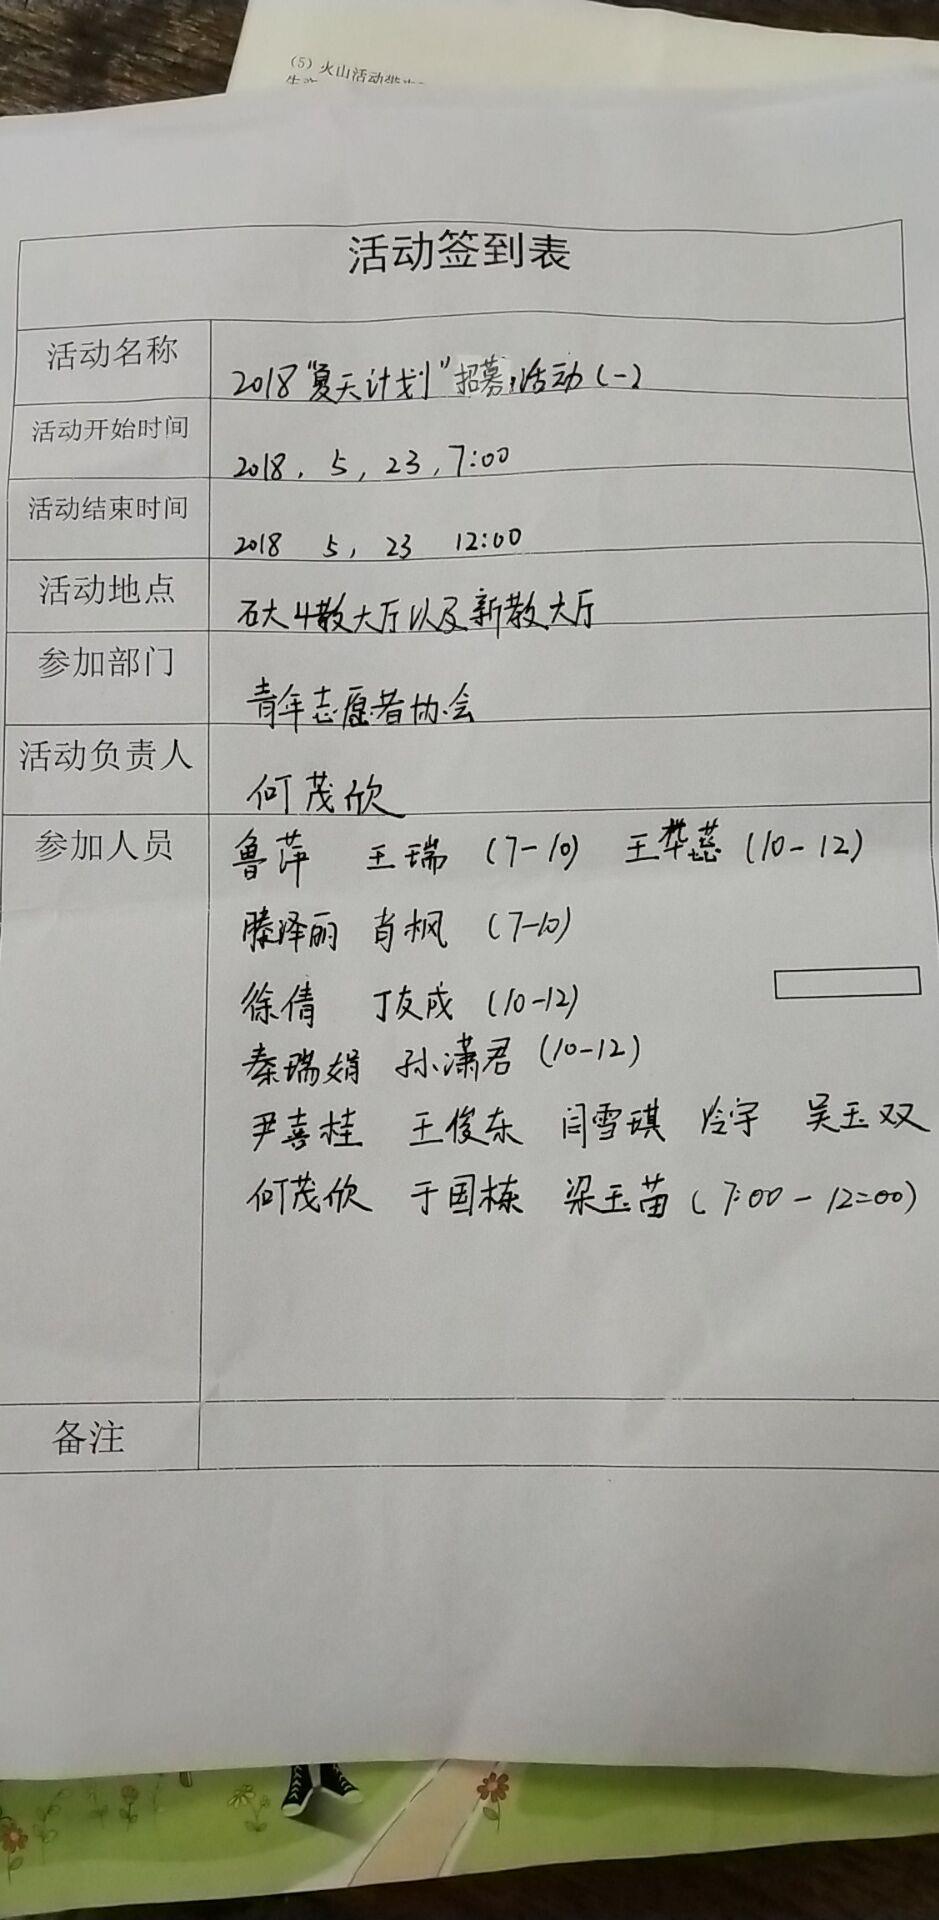 (5) 火山活动
活动签到表
活动名称 2018“夏天计划”招募活动(一)
活动开始时间 2018. 5, 23, 7:00
活动结束时间 2018 5, 23 12:00
活动地点 石大4教大厅以及新教大厅
参加部门 青年志愿者协会
活动负责人 何茂欣
参加人员 鲁萍 王瑞 (7-10) 王桦蕊 (10-12)
滕泽丽 肖枫 (7-10)
徐倩 丁友成 (10-12)
秦瑞娟 孙潇君 (10-12)
尹喜桂 王俊东 闫雪琪 冷宇 吴玉双
何茂欣 于国栋 梁玉苗 (7:00-12:00)
备注